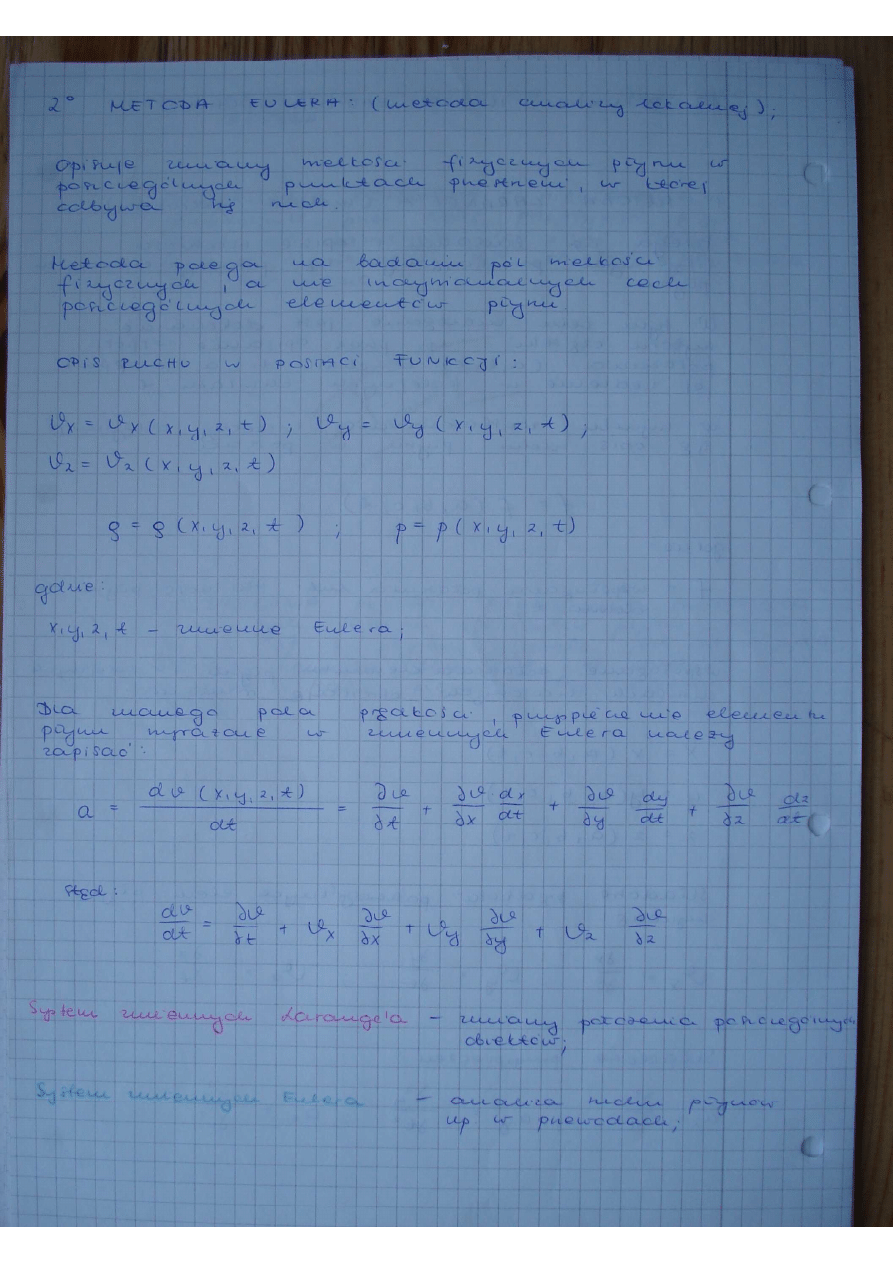 2° METODA EULERA: (metoda analizy lokalnej);
Opisuje zmiany wielkości fizycznych płynu w
poszczególnych punktach przestrzeni, w której
odbywa się ruch.
Metoda polega na badaniu pól wielkości
fizycznych, a nie indywidualnych cech
poszczególnych elementów płynu
OPIS RUCHU W POSTACI FUNKCJI:
υx = υx (x, y, z, t) ; υy = υy (x, y, z, t) ;
υz = υz (x, y, z, t)
ρ = ρ (x, y, z, t) ; p = p (x, y, z, t)
gdzie:
x, y, z, t – zmienne Eulera;
Dla znanego pola prędkości, przyspieszenie elementu
płynu wyrażone w zmiennych Eulera należy
zapisać:
a = dυ (x, y, z, t)/dt = ∂υ/∂t + ∂υ/∂x dx/dt + ∂υ/∂y dy/dt + ∂υ/∂z dz/dt
stąd:
dυ/dt = ∂υ/∂t + υx ∂υ/∂x + υy ∂υ/∂y + υz ∂υ/∂z
System zmiennych Larange'a – zmiany położenia poszczególnych
obiektów;
System zmiennych Eulera – analiza ruchu płynów
np w przewodach;